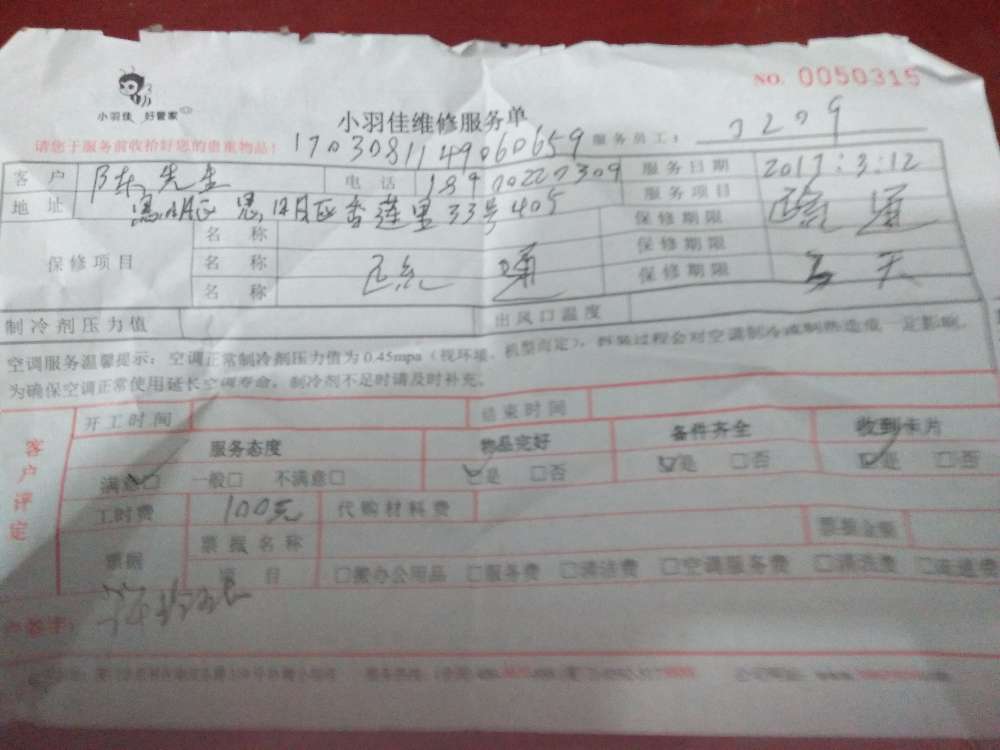 NO. 0050315
小羽佳 好管家
小羽佳维修服务单
服务员工: 0209
请您于服务前收拾好您的贵重物品! 1703081149060659
客户 陈先生 电话 服务日期 2017:3:12
地址 思明区思明区香莲里33号405 服务项目 疏通
保修项目 名称 保修期限
名称 疏通 保修期限
名称 保修期限 天
制冷剂压力值 出风口温度
空调服务温馨提示: 空调正常制冷剂压力值为0.45mpa(视环境、机型而定), 拆装过程会对空调制冷或制热造成一定影响。
为确保空调正常使用延长空调寿命, 制冷剂不足时请及时补充。
客户评定
开工时间 结束时间
服务态度 物品完好 备件齐全 收到卡片
满意□ 一般□ 不满意□ □是 □否 □是 □否 □是 □否
工时费 100元 代购材料费
票据 票据名称 票据金额
项目 □搬办公用品 □服务费 □清洁费 □空调服务费 □清洗费